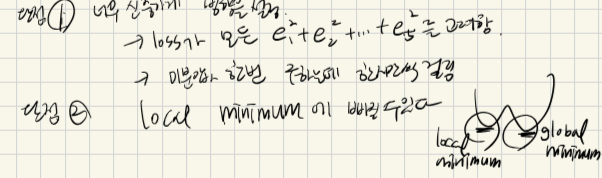 단점 ① 너무 신중하게 방향을 설정.
→ loss가 모든 e₁²+e₂²+...+e₅²를 고려함.
→ 미분값 한번 구하는데 한세월 걸림
단점 ② local minimum에 빠질 수 있다
local minimum
global minimum